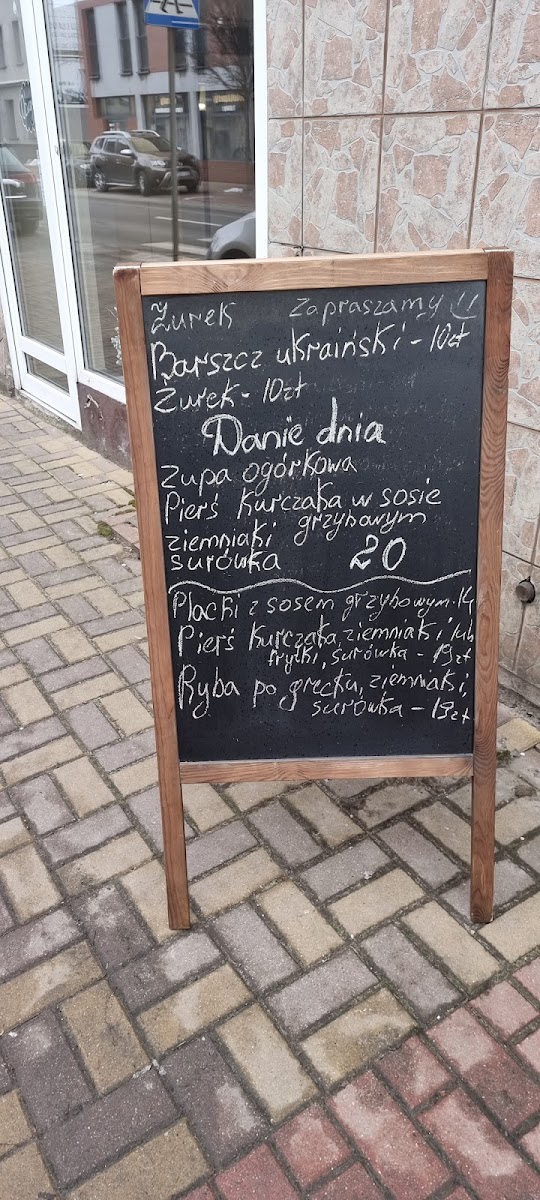 Żurek Zapraszamy !!
Barszcz ukraiński - 10zł
Żurek - 10zł
Danie dnia
Zupa ogórkowa
Pierś kurczaka w sosie
grzybowym
ziemniaki
surówka 20
Placki z sosem grzybowym.
Pierś kurczaka, ziemniaki lub
frytki, surówka - 19zł
Ryba po grecku, ziemniaki,
surówka - 19zł